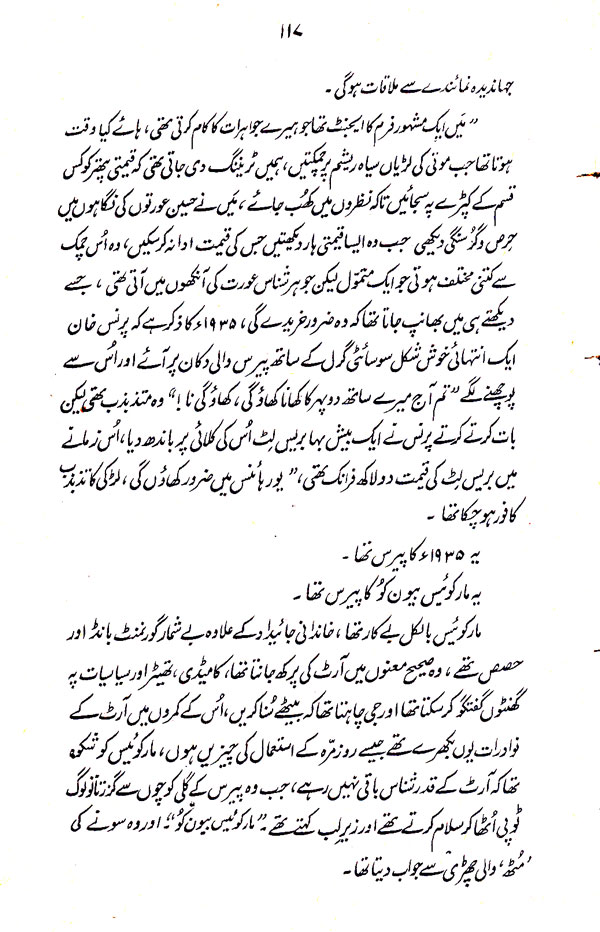 ۱۱۷
جہاندیدہ نمائندے سے ملاقات ہوگی ۔
” مَیں ایک مشہور فرم کا ایجنٹ تھا جو ہیرے جواہرات کا کام کرتی تھی ، ہائے کیا وقت
ہوتا تھا جب موتی کی لڑیاں سیاہ ریشم پر چمکتیں ، ہمیں ٹریننگ دی جاتی تھی کہ قیمتی پتھر کو کس
قسم کے کپڑے پہ سجائیں تاکہ نظروں میں کھُب جائے ، مَیں نے حسین عورتوں کی نگاہوں میں
حرص و گرُسنگی دیکھی جب وہ ایسا قیمتی ہار دیکھتیں جس کی قیمت ادا نہ کر سکیں ، وہ اُس چمک
سے کتنی مختلف ہوتی جو ایک متموّل لیکن جوہر شناس عورت کی آنکھوں میں آتی تھی ، جسے
دیکھتے ہی میں بھانپ جاتا تھا کہ وہ ضرور خریدے گی ، ۱۹۳۵ء کا ذکر ہے کہ پرنس خان
ایک انتہائی خوش شکل سوسائٹی گرل کے ساتھ پیرس والی دکان پر آئے اور اُس سے
پوچھنے لگے ” تم آج میرے ساتھ دوپہر کا کھانا کھاؤ گی ، کھاؤ گی نا !“ وہ متذبذب تھی لیکن
بات کرتے کرتے پرنس نے ایک بیش بہا بریس لِٹ اُس کی کلائی پر باندھ دیا ، اُس زمانے
میں بریس لِٹ کی قیمت دو لاکھ فرانک تھی ، ” یور ہائنس میں ضرور کھاؤں گی ، لڑکی کا تذبذب
کافور ہو چکا تھا ۔
یہ ۱۹۳۵ء کا پیرس تھا ۔
یہ مارکوئیس بیون کُو کا پیرس تھا ۔
مارکوئیس بالکل بے کار تھا ، خاندانی جائیداد کے علاوہ بے شمار گورنمنٹ بانڈ اور
حصص تھے ، وہ صحیح معنوں میں آرٹ کی پرکھ جانتا تھا ، کامیڈی ، تھیٹر اور سیاسیات پہ
گھنٹوں گفتگو کر سکتا تھا اور جی چاہتا تھا کہ بیٹھے سُنا کریں ، اُس کے کمروں میں آرٹ کے
نوادرات یوں بکھرے تھے جیسے روزمرّہ کے استعمال کی چیزیں ہوں ، مارکوئیس کو شکوہ
تھا کہ آرٹ کے قدر شناس باقی نہیں رہے ، جب وہ پیرس کے گلی کوچوں سے گزرتا تو لوگ
ٹوپی اُٹھا کر سلام کرتے تھے اور زیرِ لب کہتے تھے ۔” مارکوئیس بیون کُو “۔ اور وہ سونے کی
’ مُٹھ ‘ والی چھڑی سے جواب دیتا تھا ۔